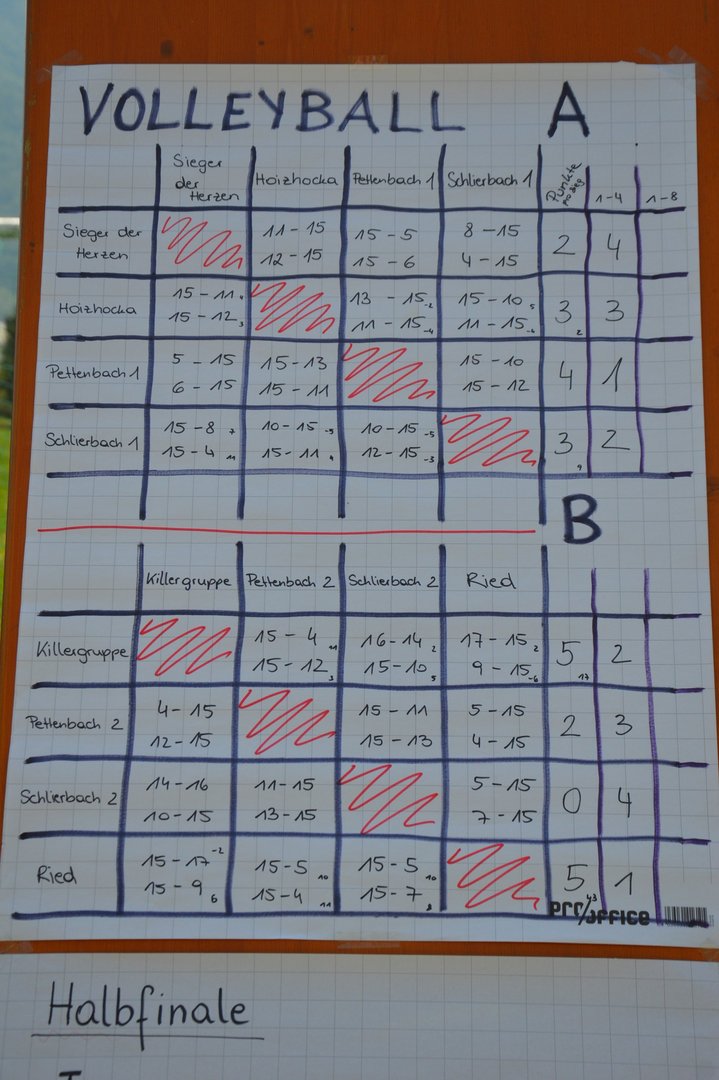 VOLLEYBALL A
Sieger der Herzen Hoizhocka Pettenbach 1 Schlierbach 1 Punkte pro Sieg 1-4 1-8
Sieger der Herzen 11 - 15 15 - 5 8 - 15 2 4
12 - 15 15 - 6 4 - 15
Hoizhocka 15 - 11 4 13 - 15 -2 15 - 10 5 3 3
15 - 12 3 11 - 15 -4 11 - 15 -4 2
Pettenbach 1 5 - 15 15 - 13 15 - 10 4 1
6 - 15 15 - 11 15 - 12
Schlierbach 1 15 - 8 7 10 - 15 -5 10 - 15 -5 3 2
15 - 4 11 15 - 11 4 12 - 15 -3 9
B
Killergruppe Pettenbach 2 Schlierbach 2 Ried
Killergruppe 15 - 4 11 16 - 14 2 17 - 15 2 5 2
15 - 12 3 15 - 10 5 9 - 15 -6 17
Pettenbach 2 4 - 15 15 - 11 5 - 15 2 3
12 - 15 15 - 13 4 - 15
Schlierbach 2 14 - 16 11 - 15 5 - 15 0 4
10 - 15 13 - 15 7 - 15
Ried 15 - 17 -2 15 - 5 10 15 - 5 10 5 1
15 - 9 6 15 - 4 11 15 - 7 8 43
office
Halbfinale